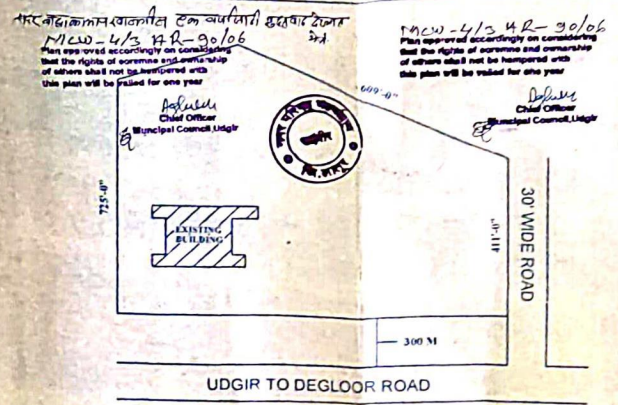 एक वर्षाची मुदतवाढ देण्यात
येते.
MCW-4/3 HR-90/06
Plan approved accordingly on considering
that the rights of earemne and ownership
of others shall not be hampered with
this plan will be vailed for one year
Chief Officer
Muncipal Council, Udgir
MCW-4/3 HR-90/06
Plan approved accordingly on considering
that the rights of earemne and ownership
of others shall not be hampered with
this plan will be vailed for one year
Chief Officer
Muncipal Council, Udgir
609'-0"
नगर परिषद
उदगीर
जि. लातूर
725'-0"
EXISTING
BUILDING
411'-0"
30' WIDE ROAD
300 M
UDGIR TO DEGLOOR ROAD